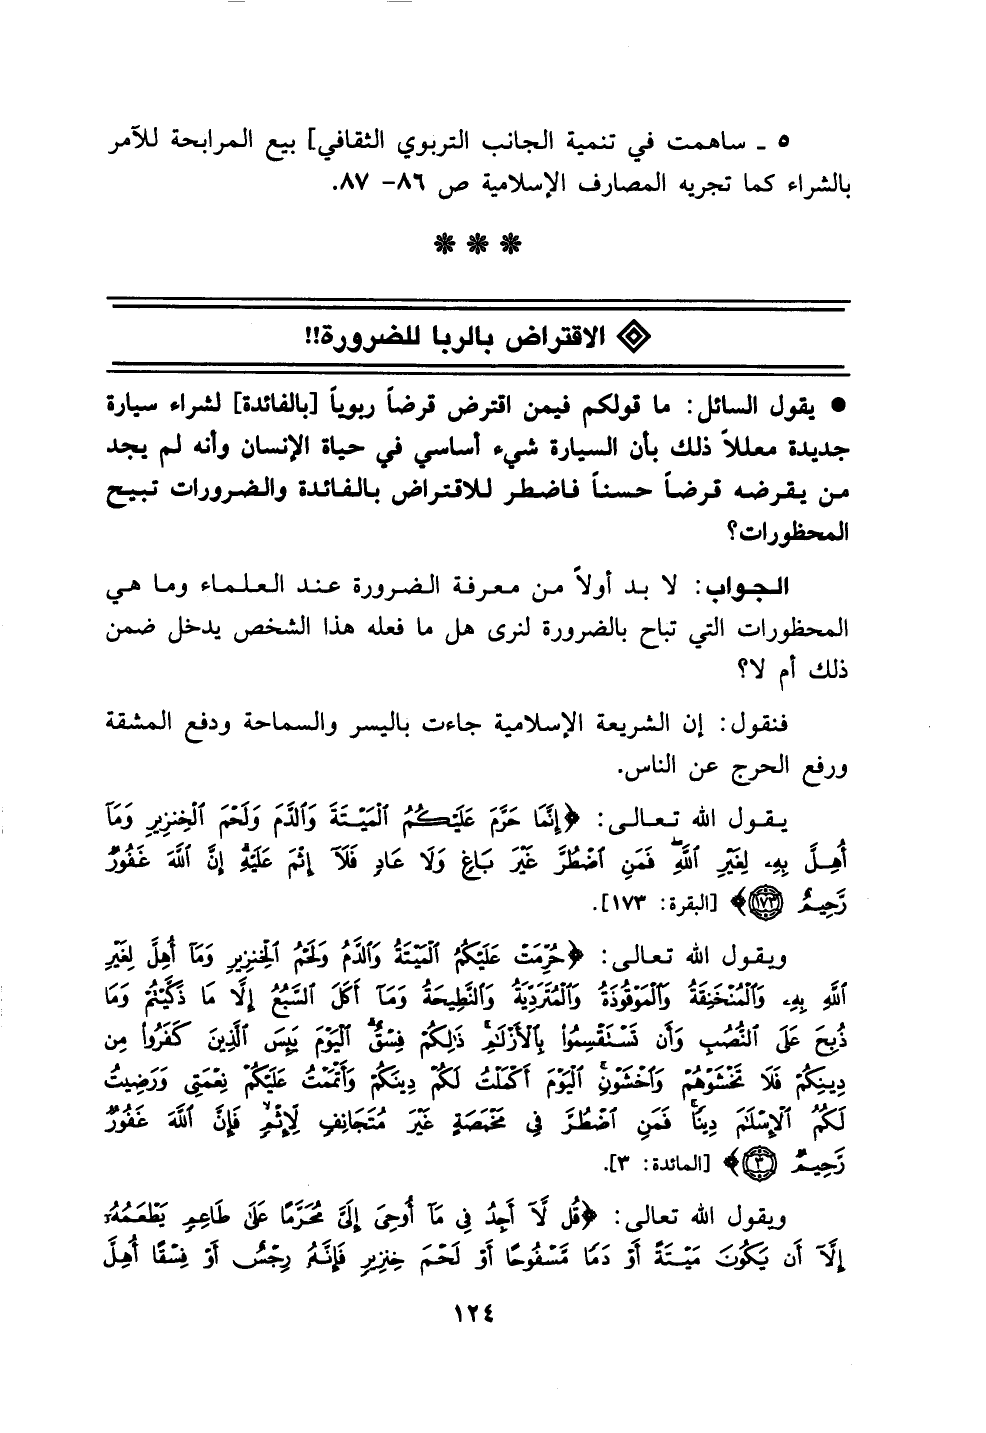 ٥ ـ ساهمت في تنمية الجانب التربوي الثقافي] بيع المرابحة للآمر
بالشراء كما تجريه المصارف الإسلامية ص ٨٦- ٨٧.
الاقتراض بالربا للضرورة!!
● يقول السائل: ما قولكم فيمن اقترض قرضاً ربوياً [بالفائدة] لشراء سيارة
جديدة معللاً ذلك بأن السيارة شيء أساسي في حياة الإنسان وأنه لم يجد
من يقرضه قرضاً حسناً فاضطر للاقتراض بالفائدة والضرورات تبيح
المحظورات؟
الجواب: لا بد أولاً من معرفة الضرورة عند العلماء وما هي
المحظورات التي تباح بالضرورة لنرى هل ما فعله هذا الشخص يدخل ضمن
ذلك أم لا؟
فنقول: إن الشريعة الإسلامية جاءت باليسر والسماحة ودفع المشقة
ورفع الحرج عن الناس.
يقول الله تعالى: ﴿إِنَّمَا حَرَّمَ عَلَيْكُمُ ٱلْمَيْتَةَ وَٱلدَّمَ وَلَحْمَ ٱلْخِنزِيرِ وَمَآ
أُهِلَّ بِهِۦ لِغَيْرِ ٱللَّهِۖ فَمَنِ ٱضْطُرَّ غَيْرَ بَاغٍ وَلَا عَادٍ فَلَآ إِثْمَ عَلَيْهِۚ إِنَّ ٱللَّهَ غَفُورٌ
رَّحِيمٌ ١٧٣﴾ [البقرة: ١٧٣].
ويقول الله تعالى: ﴿حُرِّمَتْ عَلَيْكُمُ ٱلْمَيْتَةُ وَٱلدَّمُ وَلَحْمُ ٱلْخِنزِيرِ وَمَآ أُهِلَّ لِغَيْرِ
ٱللَّهِ بِهِۦ وَٱلْمُنْخَنِقَةُ وَٱلْمَوْقُوذَةُ وَٱلْمُتَرَدِّيَةُ وَٱلنَّطِيحَةُ وَمَآ أَكَلَ ٱلسَّبُعُ إِلَّا مَا ذَكَّيْتُمْ وَمَا
ذُبِحَ عَلَى ٱلنُّصُبِ وَأَن تَسْتَقْسِمُوا۟ بِٱلْأَزْلَٰمِۚ ذَٰلِكُمْ فِسْقٌۗ ٱلْيَوْمَ يَئِسَ ٱلَّذِينَ كَفَرُوا۟ مِن
دِينِكُمْ فَلَا تَخْشَوْهُمْ وَٱخْشَوْنِۚ ٱلْيَوْمَ أَكْمَلْتُ لَكُمْ دِينَكُمْ وَأَتْمَمْتُ عَلَيْكُمْ نِعْمَتِى وَرَضِيتُ
لَكُمُ ٱلْإِسْلَٰمَ دِينًاۚ فَمَنِ ٱضْطُرَّ فِى مَخْمَصَةٍ غَيْرَ مُتَجَانِفٍ لِّإِثْمٍۙ فَإِنَّ ٱللَّهَ غَفُورٌ
رَّحِيمٌ ٣﴾ [المائدة: ٣].
ويقول الله تعالى: ﴿قُل لَّآ أَجِدُ فِى مَآ أُوحِىَ إِلَىَّ مُحَرَّمًا عَلَىٰ طَاعِمٍ يَطْعَمُهُۥٓ
إِلَّآ أَن يَكُونَ مَيْتَةً أَوْ دَمًا مَّسْفُوحًا أَوْ لَحْمَ خِنزِيرٍ فَإِنَّهُۥ رِجْسٌ أَوْ فِسْقًا أُهِلَّ
١٢٤